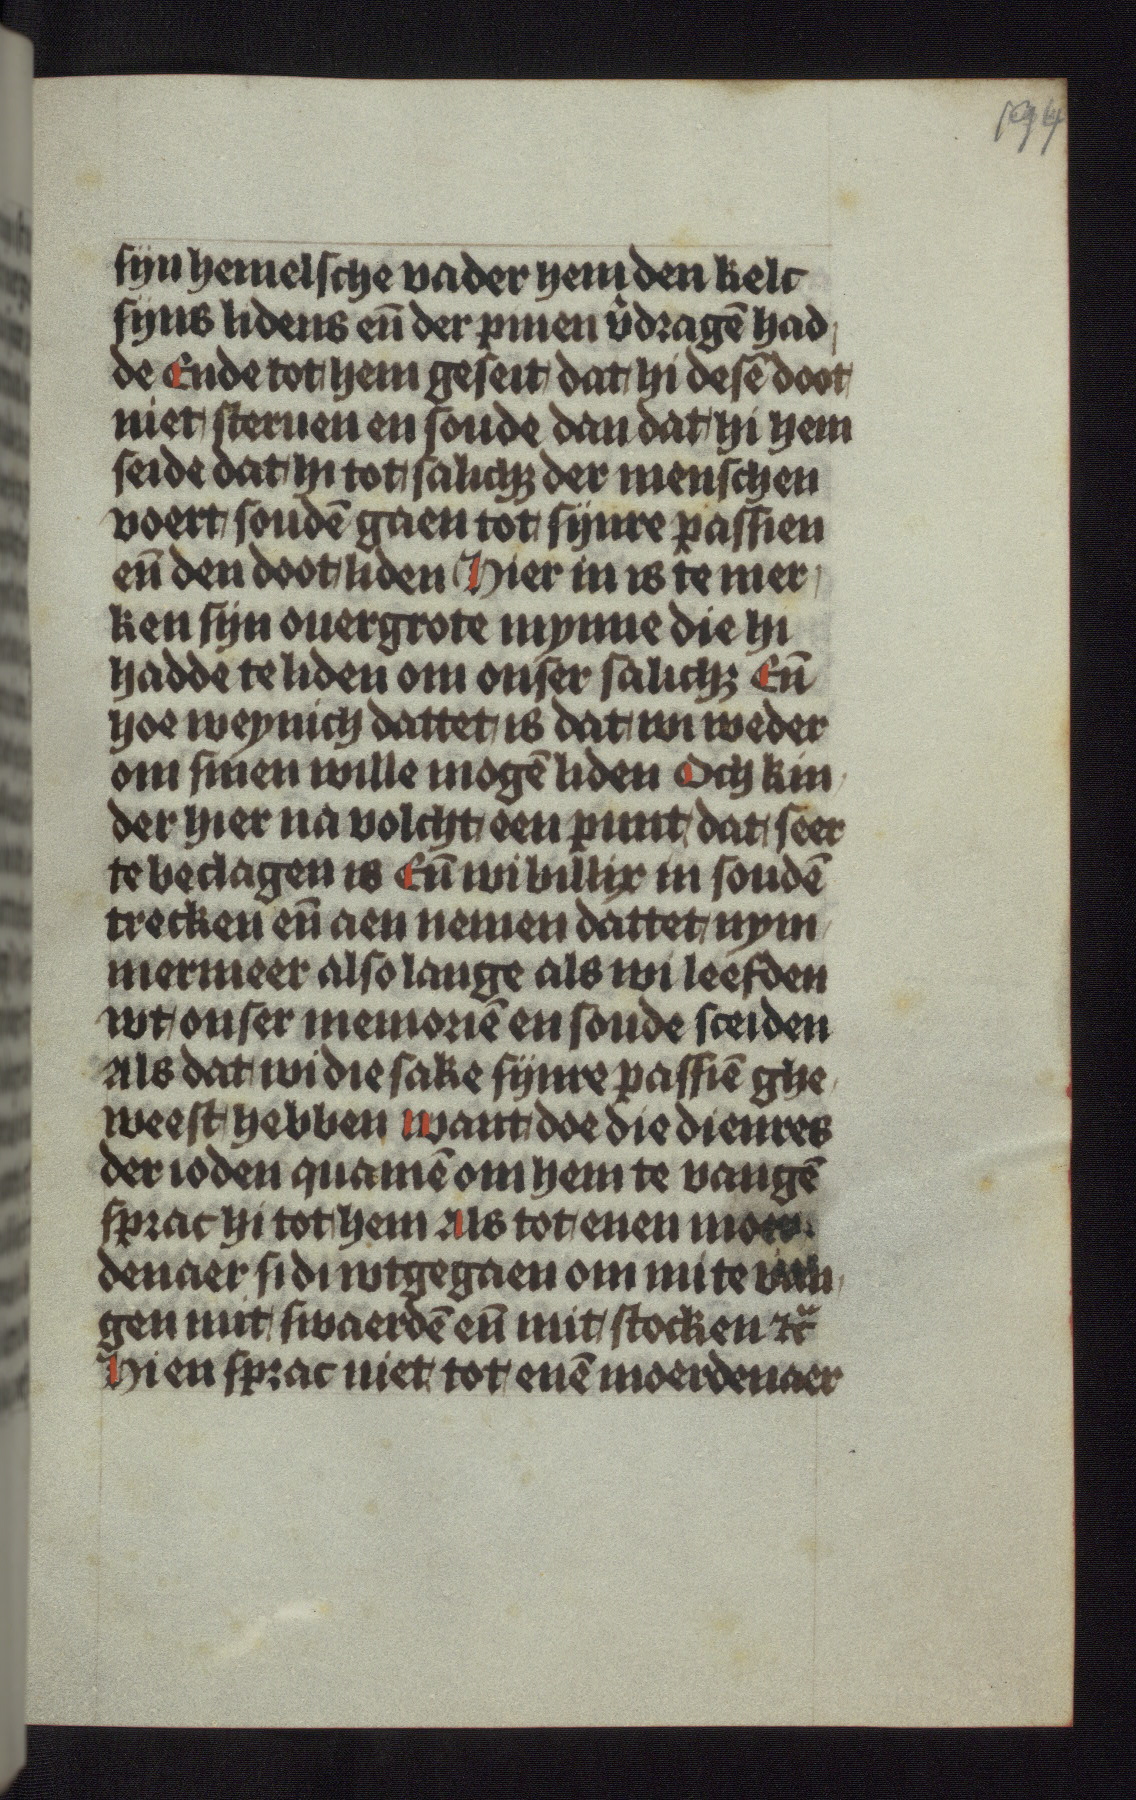 194
sijn hemelsche vader hem den kelc
sijns lidens en̄ der pinen v̄dragē had
de Ende tot hem geseit dat hi desē doot
niet steruen en soude dan dat hi hem
seide dat hi tot salichꝫ der menschen
voert soudē gaen tot sijnre passien
en̄ den doot liden Hier in is te mer
ken sijn ouergrote mynne die hi
hadde te liden om onser salichꝫ En̄
hoe weynich dattet is dat wi weder
om sinen wille mogē liden Och kin
der hier na volcht een punt dat seer
te beclagen is En̄ wi billix in soudē
trecken en̄ aen nemen dattet nym
mermeer also lange als wi leefden
wt onser memoriē en soude sceiden
Als dat wi die sake sijnre passiē ghe
weest hebben want doe die dienres
der ioden quamē om hem te vangē
sprac hi tot hem Als tot enen moer
denaer sidi wtgegaen om mi te van
gen mit swaerdē en̄ mit stocken ⁊c̄
Hi en sprac niet tot enē moerdenaer